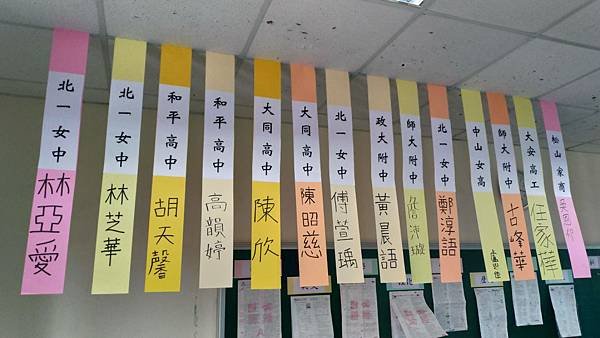 北一女中 林亞愛
北一女中 林芝華
和平高中 胡天馨
和平高中 高韻婷
大同高中 陳欣
大同高中 陳昭慈
北一女中 傅萱瑀
政大附中 黃晨語
師大附中
北一女中 鄭淳語
中山女高
師大附中 古峰華
大安高工 任家華
松山家商